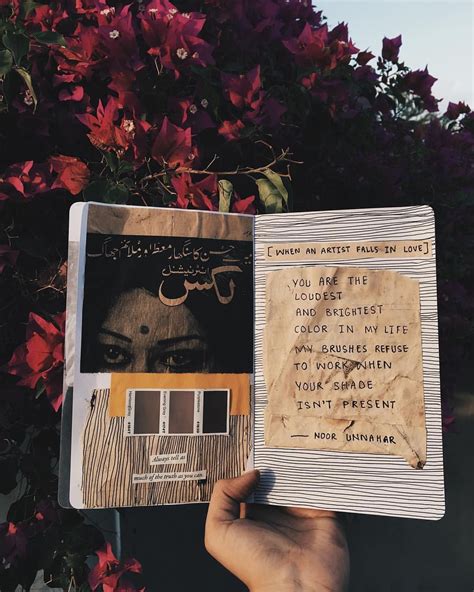 حسن کا سنگھار معطر اور ملائم جھاگ
انٹرنیشنل
لکس
Always tell as
much of the truth as you can.
[WHEN AN ARTIST FALLS IN LOVE]
YOU ARE THE
LOUDEST
AND BRIGHTEST
COLOR IN MY LIFE
MY BRUSHES REFUSE
TO WORK WHEN
YOUR SHADE
ISN'T PRESENT
— NOOR UNNAHAR